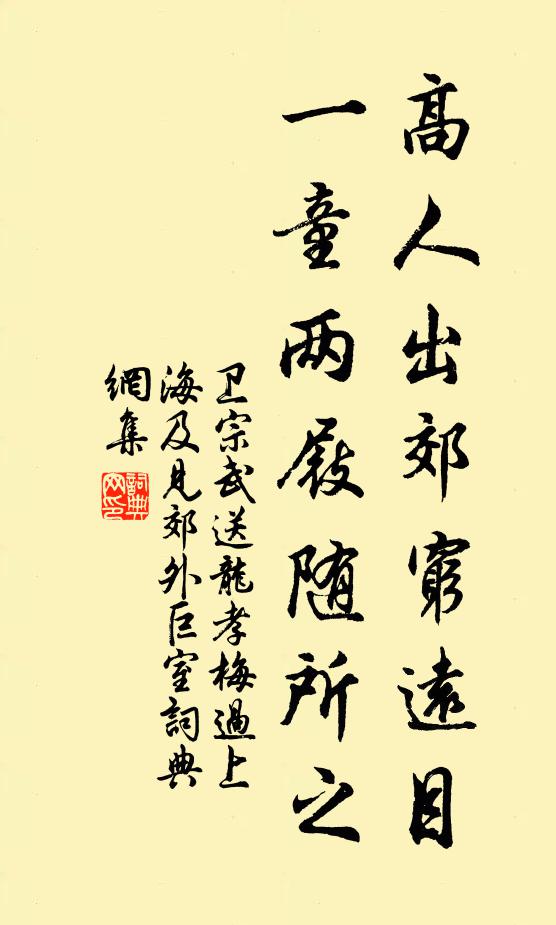 高人出郊窮遠目
一童两屐随所之
卫宗武送龍孝梅過上
海及見郊外巨室詞典
網集
詞典網印